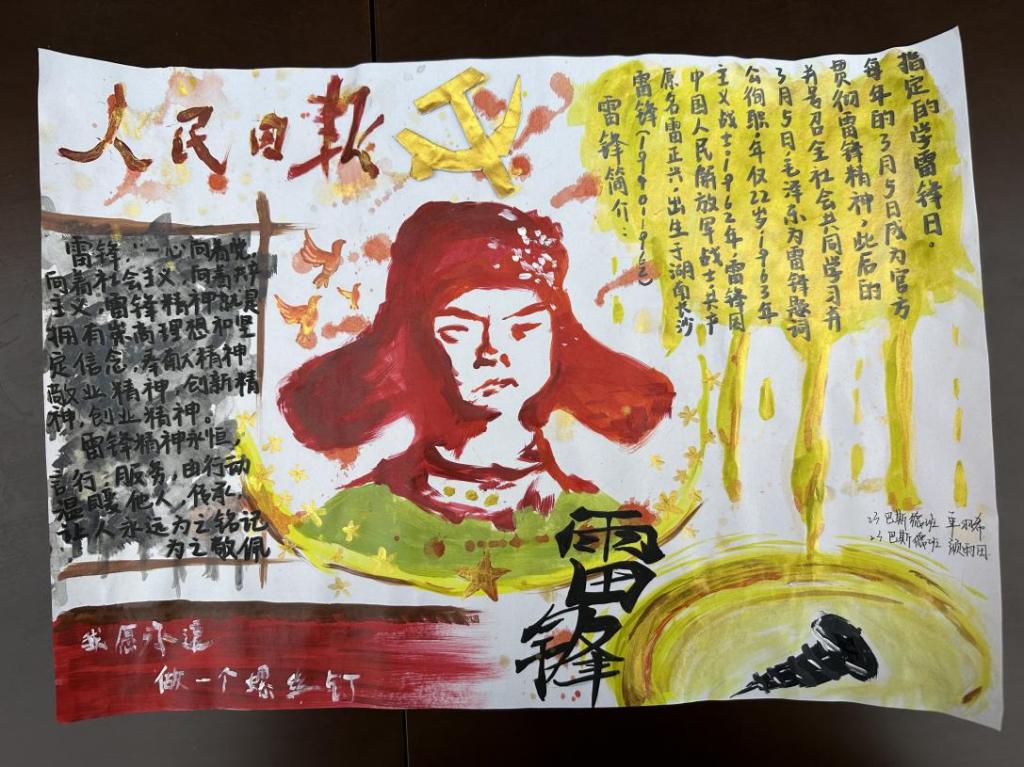 人民日报
雷锋简介:
雷锋(1940-1962)
原名雷正兴,出生于湖南长沙
中国人民解放军战士,共产
主义战士,1962年,雷锋因
公徇职年仅22岁,1963年
3月5日,毛泽东为雷锋题词
并号召全社会共同学习弃
贯彻雷锋精神,此后的
每年的3月5日成为官方
指定的学雷锋日。
雷锋:一心向着光,
向着社会主义,向着
主义,雷锋精神就是
拥有崇高理想和坚
定信念,奉献精神
敬业精神,创新精
神,创业精神。
雷锋精神永恒,
言行服务,由行动
温暖他人,传承,
让人永远为之铭记
为之敬佩
雷锋
我愿永远
做一个螺丝钉
23 巴斯德班
23 巴斯德班